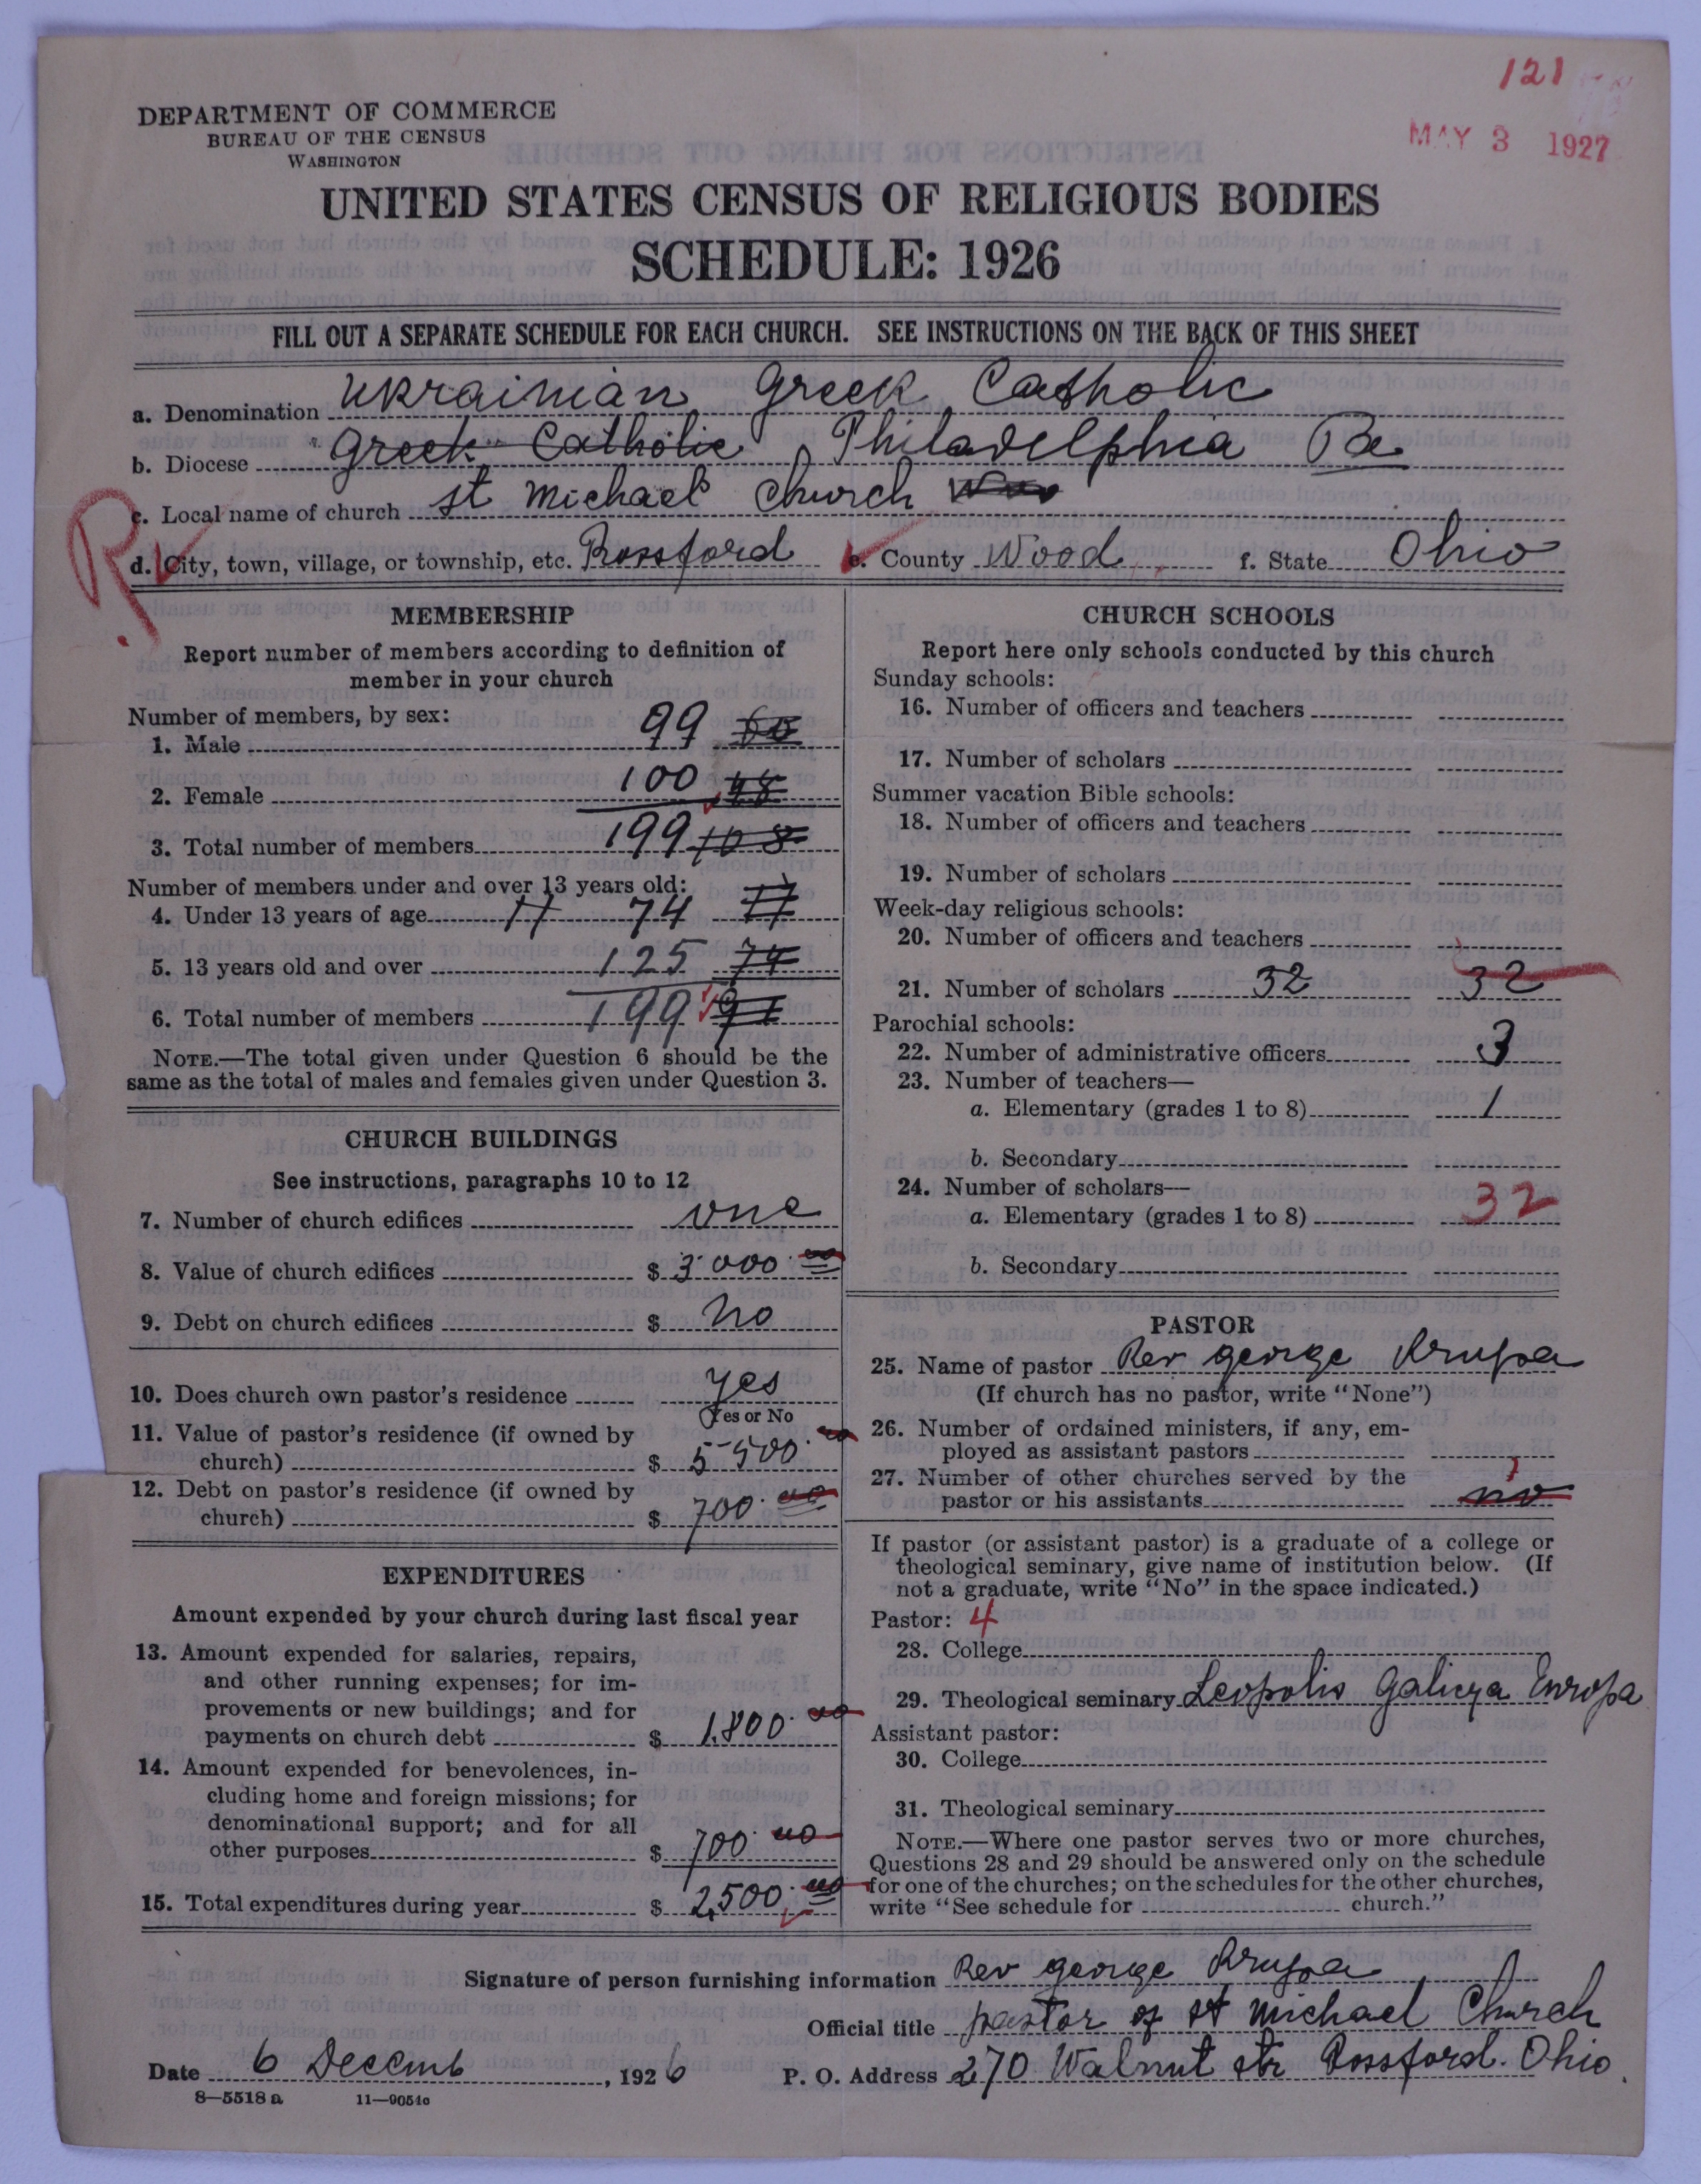 121
MAY 3 1927
DEPARTMENT OF COMMERCE
BUREAU OF THE CENSUS
WASHINGTON
UNITED STATES CENSUS OF RELIGIOUS BODIES
SCHEDULE: 1926
FILL OUT A SEPARATE SCHEDULE FOR EACH CHURCH. SEE INSTRUCTIONS ON THE BACK OF THIS SHEET
a. Denomination Ukrainian Greek Catholic
b. Diocese "Greek" Catholic Philadelphia Pa
c. Local name of church st Michael church
d. City, town, village, or township, etc. Rossford e. County Wood f. State Ohio
R
MEMBERSHIP
Report number of members according to definition of
member in your church
Number of members, by sex:
1. Male 99 60
2. Female 100 48
3. Total number of members 199 108
Number of members under and over 13 years old:
4. Under 13 years of age 17 74 17
5. 13 years old and over 125 74
6. Total number of members 199 91
NOTE.—The total given under Question 6 should be the
same as the total of males and females given under Question 3.
CHURCH BUILDINGS
See instructions, paragraphs 10 to 12
7. Number of church edifices one
8. Value of church edifices $ 3000.00
9. Debt on church edifices $ no
10. Does church own pastor's residence yes
Yes or No
11. Value of pastor's residence (if owned by
church) $ 5500.00
12. Debt on pastor's residence (if owned by
church) $ 700.00
EXPENDITURES
Amount expended by your church during last fiscal year
13. Amount expended for salaries, repairs,
and other running expenses; for im-
provements or new buildings; and for
payments on church debt $ 1.800.00
14. Amount expended for benevolences, in-
cluding home and foreign missions; for
denominational support; and for all
other purposes $ 700.00
15. Total expenditures during year $ 2,500.00
CHURCH SCHOOLS
Report here only schools conducted by this church
Sunday schools:
16. Number of officers and teachers
17. Number of scholars
Summer vacation Bible schools:
18. Number of officers and teachers
19. Number of scholars
Week-day religious schools:
20. Number of officers and teachers
21. Number of scholars 32 32
Parochial schools:
22. Number of administrative officers 3
23. Number of teachers—
a. Elementary (grades 1 to 8) 1
b. Secondary
24. Number of scholars—
a. Elementary (grades 1 to 8) 32
b. Secondary
PASTOR
25. Name of pastor Rev george Krupa
(If church has no pastor, write "None")
26. Number of ordained ministers, if any, em-
ployed as assistant pastors
27. Number of other churches served by the
pastor or his assistants no
If pastor (or assistant pastor) is a graduate of a college or
theological seminary, give name of institution below. (If
not a graduate, write "No" in the space indicated.)
Pastor: 4
28. College
29. Theological seminary Leopolis Galicya Europa
Assistant pastor:
30. College
31. Theological seminary
NOTE.—Where one pastor serves two or more churches,
Questions 28 and 29 should be answered only on the schedule
for one of the churches; on the schedules for the other churches,
write "See schedule for church."
Signature of person furnishing information Rev george Krupa
Official title pastor of st Michael Church
Date 6 Decemb, 1926 P. O. Address 270 Walnut str Rossford. Ohio.
8—5518 a 11—9054c